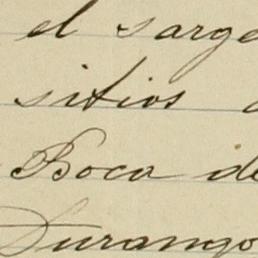 el sarge
sitios
Boca de
Durango